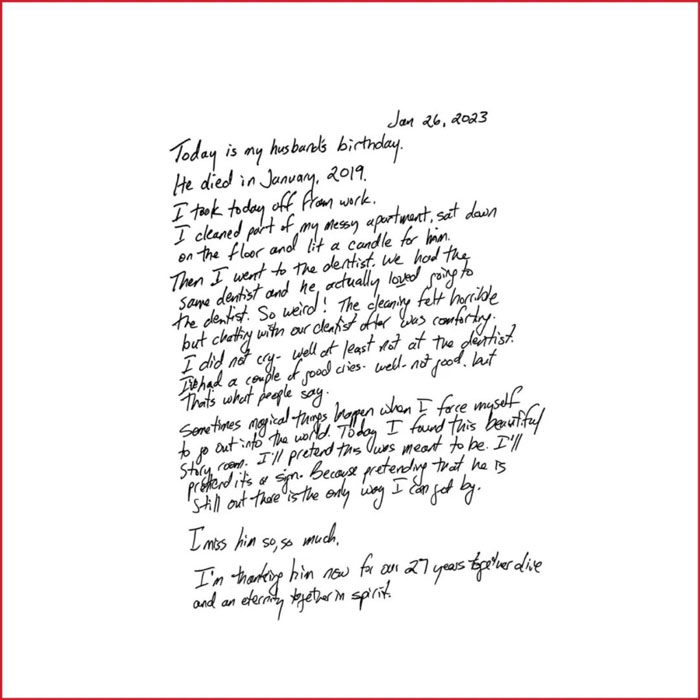 Jan 26, 2023
Today is my husband's birthday.
He died in January, 2019.
I took today off from work.
I cleaned part of my messy apartment, sat down
on the floor and lit a candle for him.
Then I went to the dentist. We had the
same dentist and he actually loved going to
the dentist. So weird! The cleaning felt horrible
but chatting with our dentist after was comforting.
I did not cry - well at least not at the dentist.
I've had a couple of good cries - well - not good, but
that's what people say.
Sometimes magical things happen when I force myself
to go out into the world. Today I found this beautiful
story room. I'll pretend this was meant to be. I'll
pretend it's a sign. Because pretending that he is
still out there is the only way I can get by.
I miss him so, so much.
I'm thanking him now for our 27 years together alive
and an eternity together in spirit.